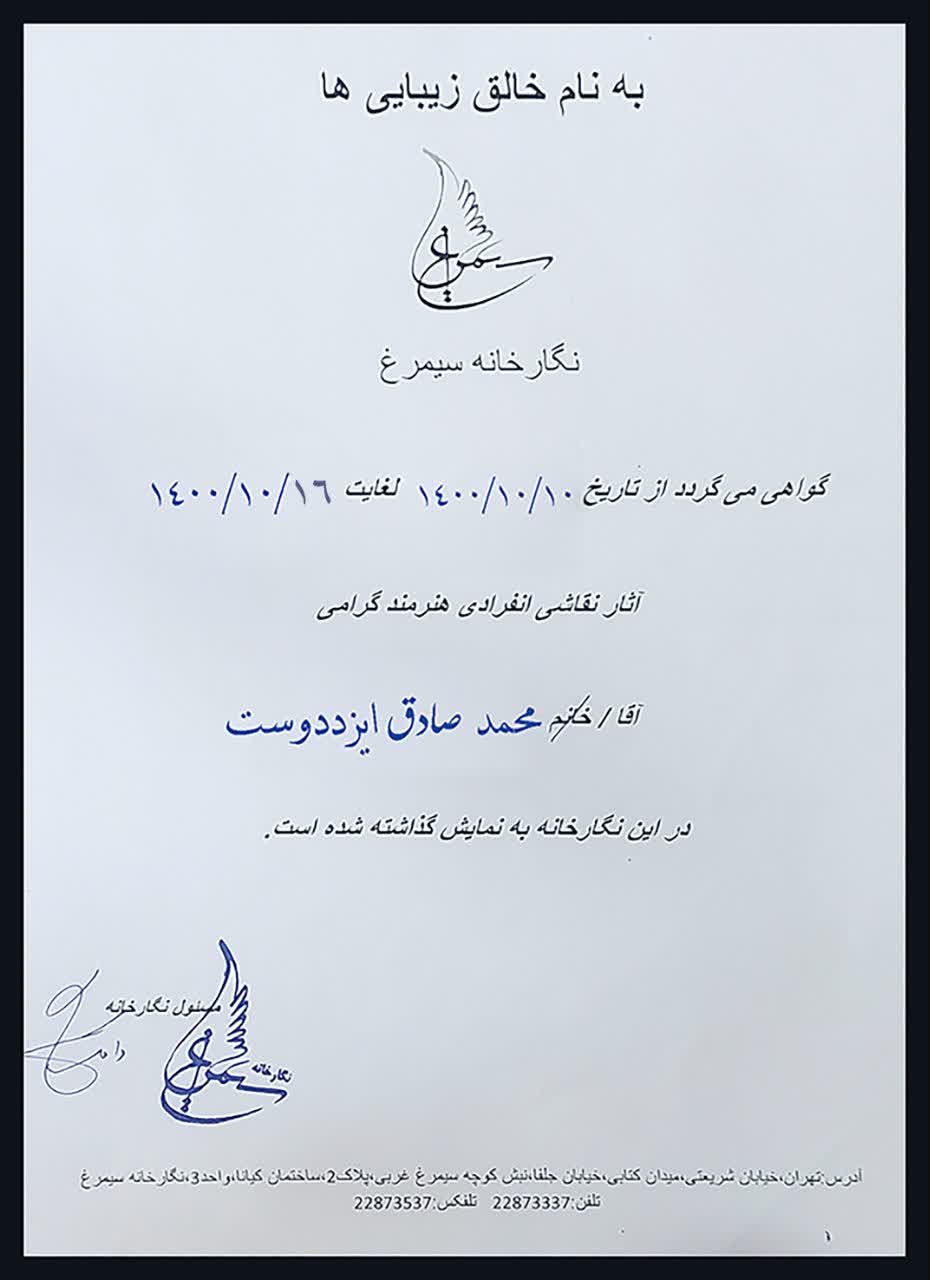 به نام خالق زیبایی ها
سیمرغ
نگارخانه سیمرغ
گواهی می گردد از تاریخ ۱۴۰۰/۱۰/۱۰ لغایت ۱۴۰۰/۱۰/۱۶
آثار نقاشی انفرادی هنرمند گرامی
آقا / خانم محمد صادق ایزددوست
در این نگارخانه به نمایش گذاشته شده است.
مسئول نگارخانه
نگارخانه
سیمرغ
آدرس:تهران،خیابان شریعتی،میدان کتابی،خیابان جلفا،نبش کوچه سیمرغ غربی،پلاک2،ساختمان کیانا،واحد3،نگارخانه سیمرغ
تلفن:22873337 تلفکس:22873537
۱